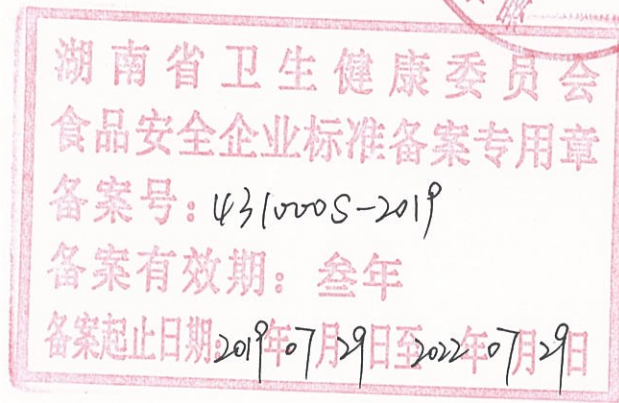 湖南省卫生健康委员会
食品安全企业标准备案专用章
备案号：431000S-2019
备案有效期：叁年
备案起止日期：2019年07月29日至2022年07月29日